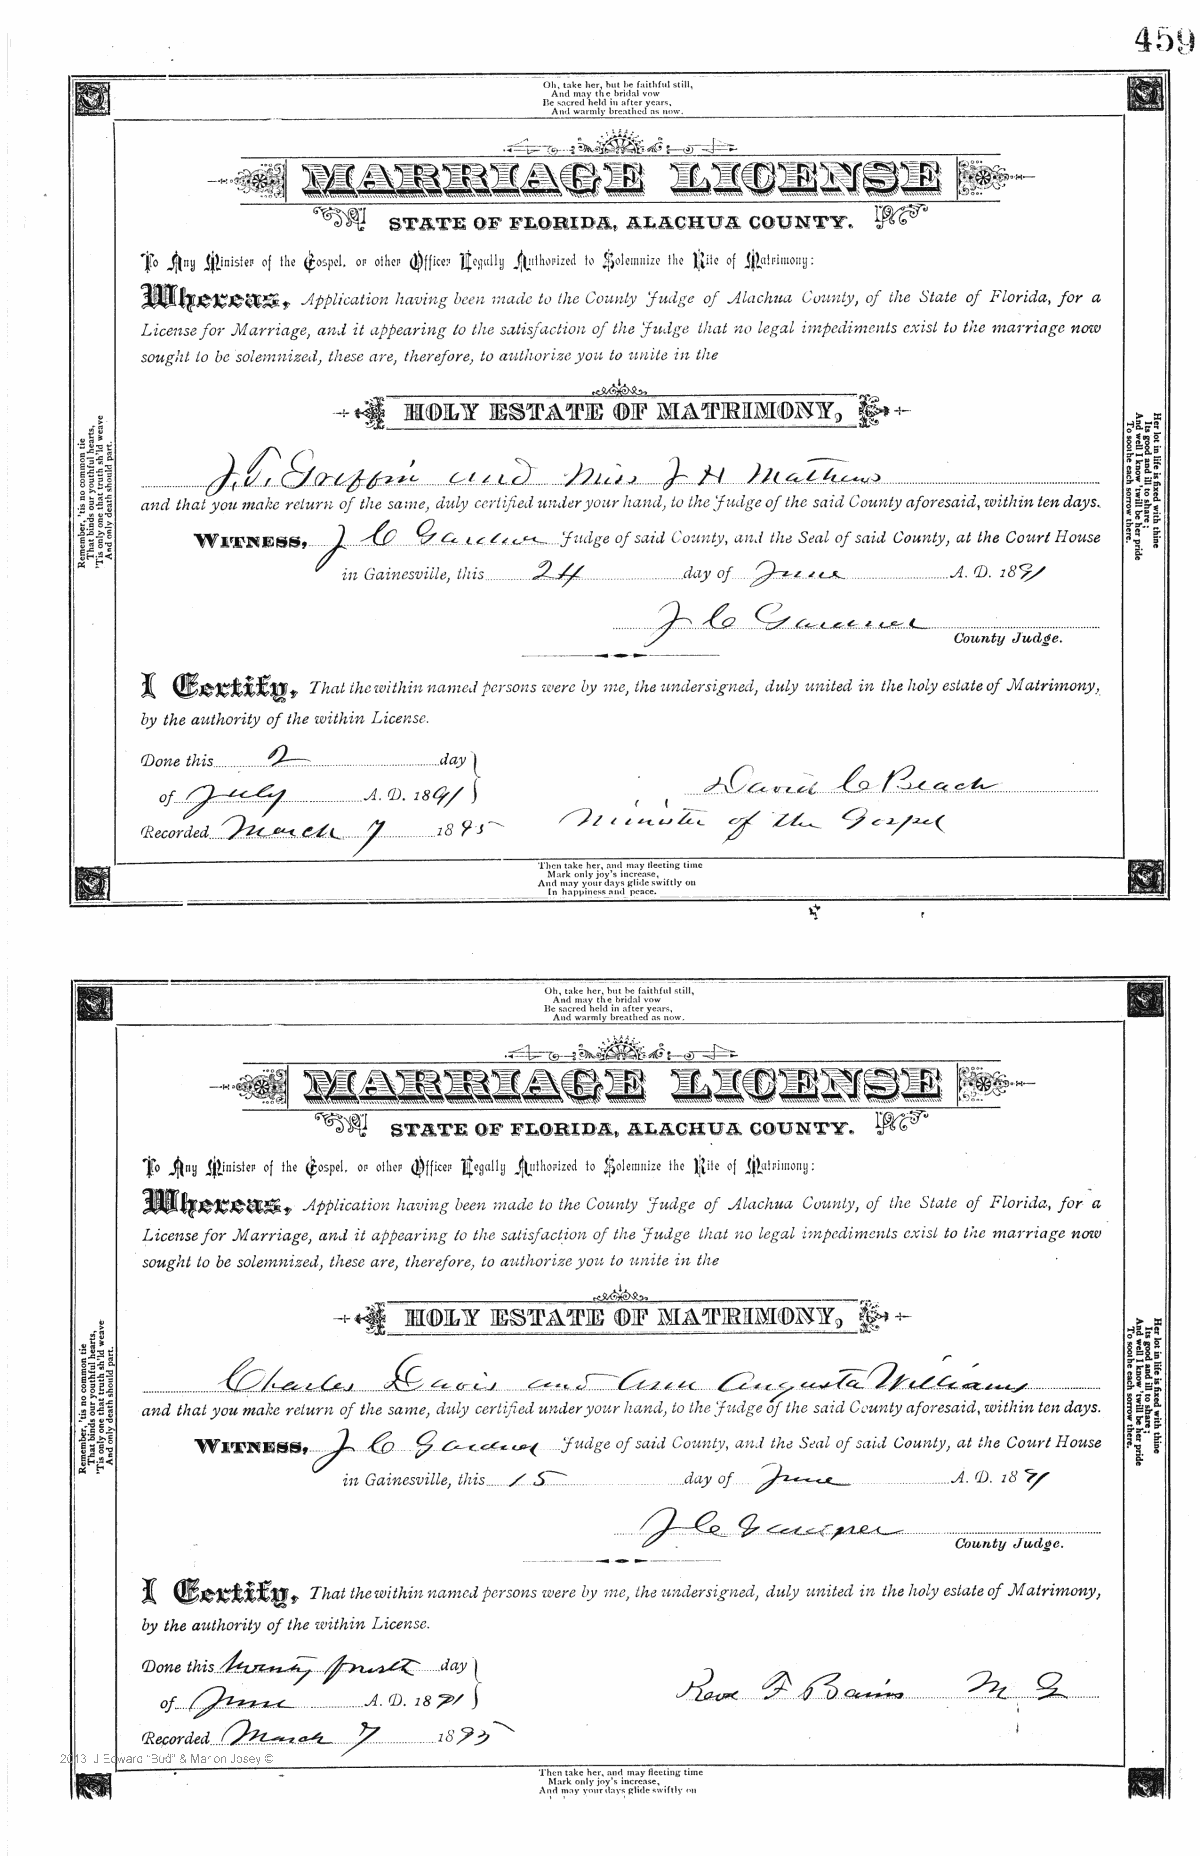 459
Oh, take her, but be faithful still,
And may the bridal vow
Be sacred held in after years,
And warmly breathed as now.
MARRIAGE LICENSE
STATE OF FLORIDA, ALACHUA COUNTY.
To Any Minister of the Gospel, or other Officer Legally Authorized to Solemnize the Rite of Matrimony:
Whereas, Application having been made to the County Judge of Alachua County, of the State of Florida, for a
License for Marriage, and it appearing to the satisfaction of the Judge that no legal impediments exist to the marriage now
sought to be solemnized, these are, therefore, to authorize you to unite in the
HOLY ESTATE OF MATRIMONY,
J. T. Griffin and Miss J H Mathews
and that you make return of the same, duly certified under your hand, to the Judge of the said County aforesaid, within ten days.
WITNESS, J C Gardner Judge of said County, and the Seal of said County, at the Court House
in Gainesville, this 24 day of June A. D. 1891
J C Gardner
County Judge.
I Certify, That the within named persons were by me, the undersigned, duly united in the holy estate of Matrimony,
by the authority of the within License.
Done this 2 day
of July A. D. 1891
David C Beach
Minister of the Gospel
Recorded March 7 1895
Then take her, and may fleeting time
Mark only joy's increase,
And may your days glide swiftly on
In happiness and peace.
Remember, 'tis no common tie
That binds our youthful hearts,
'Tis only one that truth sh'ld weave
And only death should part.
Her lot in life is fixed with thine
Its good and ill to share;
And well I know 'twill be her pride
To soothe each sorrow there.
Oh, take her, but be faithful still,
And may the bridal vow
Be sacred held in after years,
And warmly breathed as now.
MARRIAGE LICENSE
STATE OF FLORIDA, ALACHUA COUNTY.
To Any Minister of the Gospel, or other Officer Legally Authorized to Solemnize the Rite of Matrimony:
Whereas, Application having been made to the County Judge of Alachua County, of the State of Florida, for a
License for Marriage, and it appearing to the satisfaction of the Judge that no legal impediments exist to the marriage now
sought to be solemnized, these are, therefore, to authorize you to unite in the
HOLY ESTATE OF MATRIMONY,
Charles Davis and Ann Augusta Williams
and that you make return of the same, duly certified under your hand, to the Judge of the said County aforesaid, within ten days.
WITNESS, J C Gardner Judge of said County, and the Seal of said County, at the Court House
in Gainesville, this 15 day of June A. D. 1891
J C Gardner
County Judge.
I Certify, That the within named persons were by me, the undersigned, duly united in the holy estate of Matrimony,
by the authority of the within License.
Done this twenty fourth day
of June A. D. 1891
Revd F Bains M G
Recorded March 7 1895
2013 J Edward "Bud" & Marion Josey ©
Then take her, and may fleeting time
Mark only joy's increase,
And may your days glide swiftly on
Remember, 'tis no common tie
That binds our youthful hearts,
'Tis only one that truth sh'ld weave
And only death should part.
Her lot in life is fixed with thine
Its good and ill to share;
And well I know 'twill be her pride
To soothe each sorrow there.